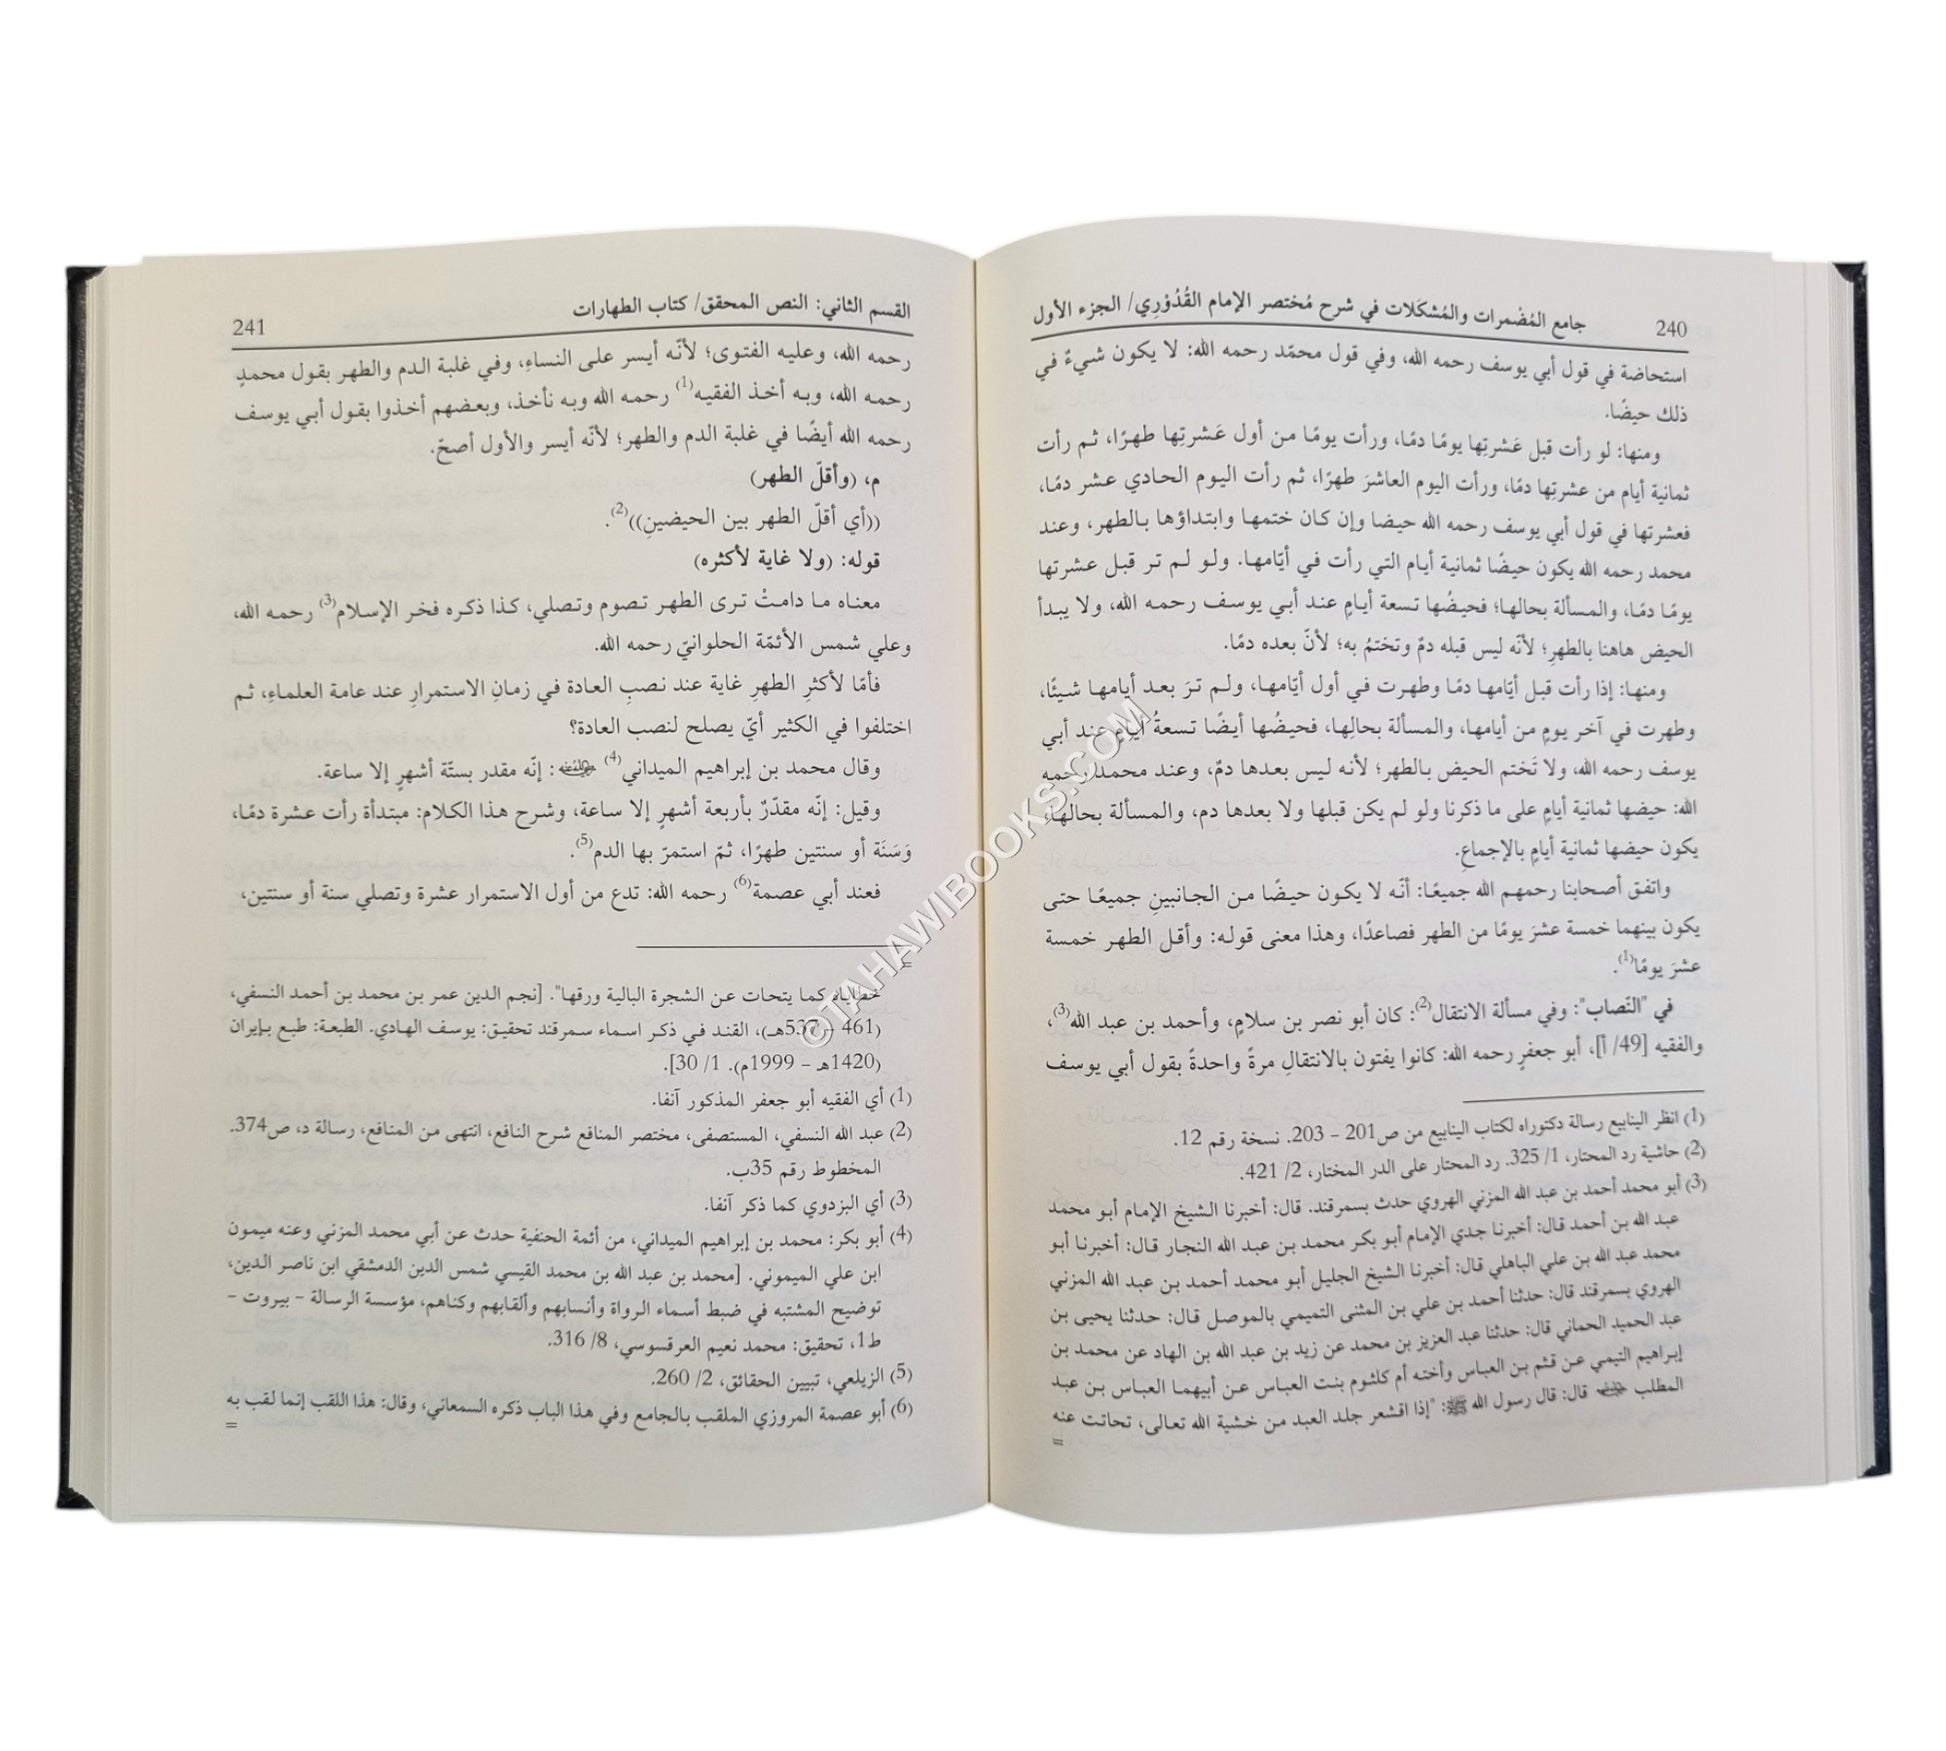 240
جامع المُضْمرات والمُشكَلات في شرح مُختصر الإمام القُدُوْرِي/ الجزء الأول
استحاضة في قول أبي يوسف رحمه الله، وفي قول محمّد رحمه الله: لا يكون شيءٌ في
ذلك حيضًا.
ومنها: لو رأت قبل عَشرتِها يومًا دمًا، ورأت يومًا من أول عَشرتِها طهرًا، ثم رأت
ثمانية أيام من عشرتِها دمًا، ورأت اليوم العاشرَ طهرًا، ثم رأت اليوم الحادي عشر دمًا،
فعشرتها في قول أبي يوسف رحمه الله حيضا وإن كان ختمها وابتداؤها بالطهر، وعند
محمد رحمه الله يكون حيضًا ثمانية أيام التي رأت في أيّامها. ولو لم تر قبل عشرتها
يومًا دمًا، والمسألة بحالها؛ فحيضُها تسعة أيامٍ عند أبي يوسف رحمه الله، ولا يبدأ
الحيض هاهنا بالطهرِ؛ لأنّه ليس قبله دمٌ وتختمُ به؛ لأنّ بعده دمًا.
ومنها: إذا رأت قبل أيّامها دمًا وطهرت في أول أيّامها، ولم ترَ بعد أيامها شيئًا،
وطهرت في آخر يومٍ من أيامها، والمسألة بحالِها، فحيضُها أيضًا تسعةُ أيامٍ عند أبي
يوسف رحمه الله، ولا تَختم الحيض بالطهر؛ لأنه ليس بعدها دمٌ، وعند محمد رحمه
الله: حيضها ثمانية أيامٍ على ما ذكرنا ولو لم يكن قبلها ولا بعدها دم، والمسألة بحالها،
يكون حيضها ثمانية أيامٍ بالإجماعِ.
واتفق أصحابنا رحمهم الله جميعًا: أنّه لا يكون حيضًا من الجانبينِ جميعًا حتى
يكون بينهما خمسة عشرَ يومًا من الطهر فصاعدًا، وهذا معنى قوله: وأقل الطهر خمسة
عشرَ يومًا(1).
في "النّصاب": وفي مسألة الانتقال(2): كان أبو نصر بن سلامٍ، وأحمد بن عبد الله(3)،
والفقيه [49/ أ]، أبو جعفرٍ رحمه الله: كانوا يفتون بالانتقالِ مرةً واحدةً بقول أبي يوسف
(1) انظر الينابيع رسالة دكتوراه لكتاب الينابيع من ص201 – 203. نسخة رقم 12.
(2) حاشية رد المحتار، 1/ 325. رد المحتار على الدر المختار، 2/ 421.
(3) أبو محمد أحمد بن عبد الله المزني الهروي حدث بسمرقند. قال: أخبرنا الشيخ الإمام أبو محمد
عبد الله بن أحمد قال: أخبرنا جدي الإمام أبو بكر محمد بن عبد الله النجار قال: أخبرنا أبو
محمد عبد الله بن علي الباهلي قال: أخبرنا الشيخ الجليل أبو محمد أحمد بن عبد الله المزني
الهروي بسمرقند قال: حدثنا أحمد بن علي بن المثنى التميمي بالموصل قال: حدثنا يحيى بن
عبد الحميد الحماني قال: حدثنا عبد العزيز بن محمد عن زيد بن عبد الله بن الهاد عن محمد بن
إبراهيم التيمي عن قثم بن العباس وأخته أم كلثوم بنت العباس عن أبيهما العباس بن عبد
المطلب قال: قال رسول الله ﷺ: "إذا اقشعر جلد العبد من خشية الله تعالى، تحاتت عنه
=
القسم الثاني: النص المحقق/ كتاب الطهارات
241
رحمه الله، وعليه الفتوى؛ لأنّه أيسر على النساءِ، وفي غلبة الدم والطهر بقول محمدٍ
رحمه الله، وبه أخذ الفقيه(1) رحمه الله وبه نأخذ، وبعضهم أخذوا بقول أبي يوسف
رحمه الله أيضًا في غلبة الدم والطهر؛ لأنّه أيسر والأول أصحّ.
م، (وأقلّ الطهر)
((أي أقلّ الطهر بين الحيضينِ))(2).
قوله: (ولا غاية لأكثره)
معناه ما دامتْ ترى الطهر تصوم وتصلي، كذا ذكره فخر الإسلام(3) رحمه الله،
وعلي شمس الأئمّة الحلوانيّ رحمه الله.
فأمّا لأكثرِ الطهرِ غاية عند نصبِ العادة في زمانِ الاستمرارِ عند عامة العلماءِ، ثم
اختلفوا في الكثير أيّ يصلح لنصب العادة؟
وقال محمد بن إبراهيم الميداني(4) : إنّه مقدر بستّة أشهرٍ إلا ساعة.
وقيل: إنّه مقدّرٌ بأربعة أشهرٍ إلا ساعة، وشرح هذا الكلام: مبتدأة رأت عشرة دمًا،
وَسَنَة أو سنتين طهرًا، ثمّ استمرّ بها الدم(5).
فعند أبي عصمة(6) رحمه الله: تدع من أول الاستمرار عشرة وتصلي سنة أو سنتين،
=
خطاياه كما يتحات عن الشجرة البالية ورقها". [نجم الدين عمر بن محمد بن أحمد النسفي،
(461 – 537هـ)، القند في ذكر اسماء سمرقند تحقيق: يوسف الهادي. الطبعة: طبع بإيران
(1420هـ – 1999م). 1/ 30].
(1) أي الفقيه أبو جعفر المذكور آنفا.
(2) عبد الله النسفي، المستصفى، مختصر المنافع شرح النافع، انتهى من المنافع، رسالة د، ص374.
المخطوط رقم 35ب.
(3) أي البزدوي كما ذكر آنفا.
(4) أبو بكر: محمد بن إبراهيم الميداني، من أئمة الحنفية حدث عن أبي محمد المزني وعنه ميمون
ابن علي الميموني. [محمد بن عبد الله بن محمد القيسي شمس الدين الدمشقي ابن ناصر الدين،
توضيح المشتبه في ضبط أسماء الرواة وأنسابهم وألقابهم وكناهم، مؤسسة الرسالة – بيروت –
ط1، تحقيق: محمد نعيم العرقسوسي، 8/ 316.
(5) الزيلعي، تبيين الحقائق، 2/ 260.
(6) أبو عصمة المروزي الملقب بالجامع وفي هذا الباب ذكره السمعاني، وقال: هذا اللقب إنما لقب به
=
©TAHAWIBOOKS.COM